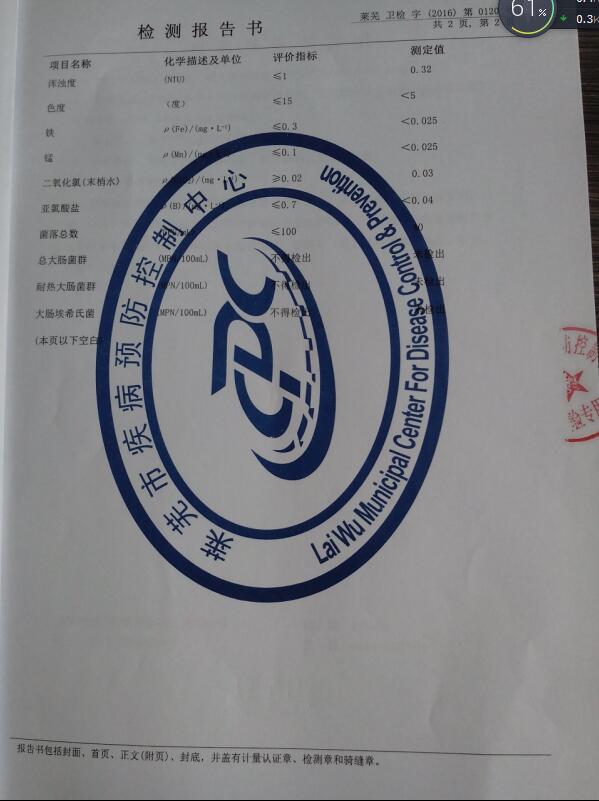 61%
0.3K
莱芜 卫检 字 (2016) 第 0120
检 测 报 告 书
共 2 页, 第 2
项目名称 化学描述及单位 评价指标 测定值
浑浊度 (NTU) ≤1 0.32
色度 (度) ≤15 <5
铁 ρ(Fe)/(mg·L⁻¹) ≤0.3 <0.025
锰 ρ(Mn)/( ≤0.1 <0.025
二氧化氯(末梢水) /(mg· ≥0.02 0.03
亚氯酸盐 (B) ≤0.7 <0.04
菌落总数 ≤100
总大肠菌群 (MPN/100mL) 不得检出 未检出
耐热大肠菌群 MPN/100mL) 不得检出 未检出
大肠埃希氏菌 (MPN/100mL) 不得检出 检出
(本页以下空白)
莱芜市疾病预防控制中心
Lai Wu Municipal Center For Disease Control & Prevention
CDC
防控制
验专用
报告书包括封面、首页、正文(附页)、封底，并盖有计量认证章、检测章和骑缝章。